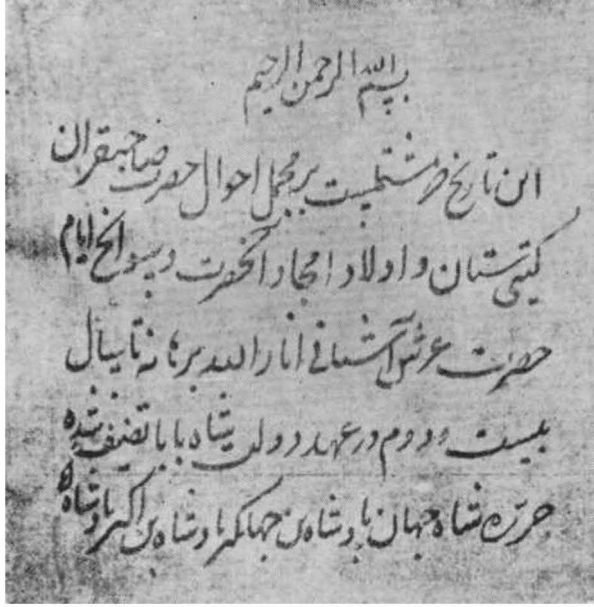 بسم الله الرحمن الرحيم
اين تاريخ كه مشتملست بر مجمل احوال حضرت صاحبقران
كيتى ستان و اولاد امجاد آنحضرت و سوانح ايام
حضرت عرش آشيانى انار الله برهانه تا سال
بيست و دوم در عهد دولت شاه بابا تصنيف شده
حرره شاه جهان پادشاه بن جهانگير پادشاه بن اكبر پادشاه